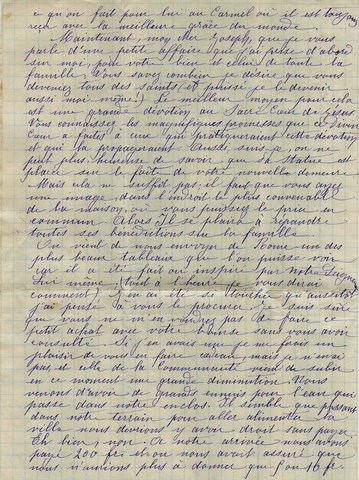 ce qu'on fait pour lui au Carmel où il est toujours
reçu avec la meilleure grâce du monde.
Maintenant, mon cher Joseph, que je vous
parle d'une petite affaire que j'ai prise d'abord
sur moi, pour votre bien et celui de toute la
famille. Vous savez combien je désire que vous
deveniez tous des saints (et puissé je le devenir
aussi moi même!) Le meilleur moyen pour cela
est une grande dévotion au Sacré Cœur de Jésus.
Vous connaissez les magnifiques promesses que ce Divin
Cœur a faites à ceux qui pratiqueraient cette dévotion
et qui la propageraient. Aussi, suis-je, on ne
peut plus heureuse de savoir que sa statue est
placée sur le faîte de votre nouvelle demeure
Mais cela ne suffit pas, il faut que vous ayez
une image, dans l'endroit le plus convenable
de la maison, où vous puissiez le prier en
commun. Alors Il se plaira à répandre
toutes ses bénédictions sur la famille.
On vient de nous envoyer de Rome un des
plus beaux tableaux que l'on puisse voir
car il a été fait ou inspiré par Notre Seigneur
Lui même. (Tout à l'heure je vous dirai
comment) J'en ai été si touchée qu'aussitôt
j'ai pensé à vous le procurer. Je suis sûre
que vous ne m'en voudrez pas de faire ce
petit achat avec votre bourse sans vous avoir
consulté. Si j'en avais une je me ferais un
plaisir de vous en faire cadeau, mais je n'en ai
pas, et celle de la Communauté vient de subir
en ce moment une grande diminution. Nous
venons d'avoir de grands ennuis pour l'eau qui
passe dans notre enclos. Il semble que passant
dans notre terrain pour aller alimenter la
villa nous devrions y avoir droit sans payer
Eh bien, non. A notre arrivée nous avons
payé 200 fr; et on nous avait assuré que
nous n'aurions plus à donner que 5 ou 16 fr.